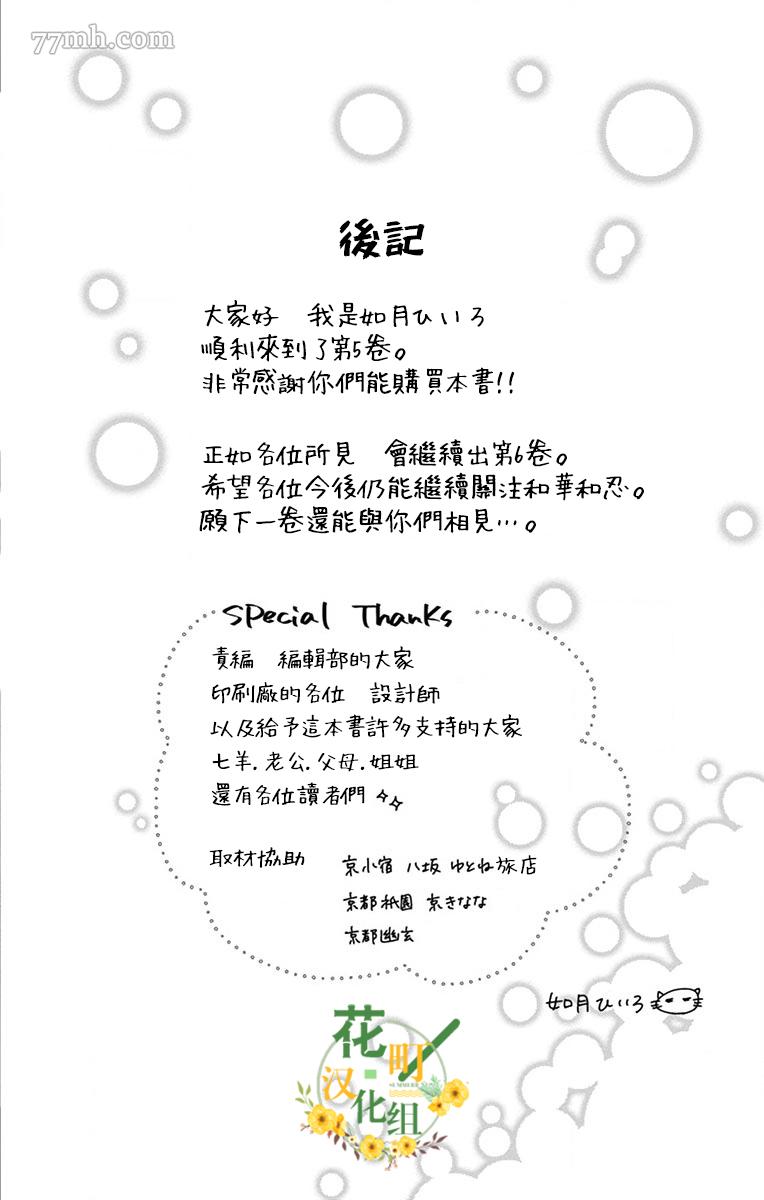 77mh.com
後記
大家好　我是如月ひいろ
順利來到了第5卷。
非常感謝你們能購買本書!!
正如各位所見　會繼續出第6卷。
希望各位今後仍能繼續關注和華和忍。
願下一卷還能與你們相見…。
SPecial Thanks
責編　編輯部的大家
印刷廠的各位　設計師
以及給予這本書許多支持的大家
七羊.老公.父母.姐姐
還有各位讀者們
取材協助　京小宿 八坂 ゆとね旅店
京都祇園 京きなな
京都幽玄
如月ひいろ
花町
汉化组